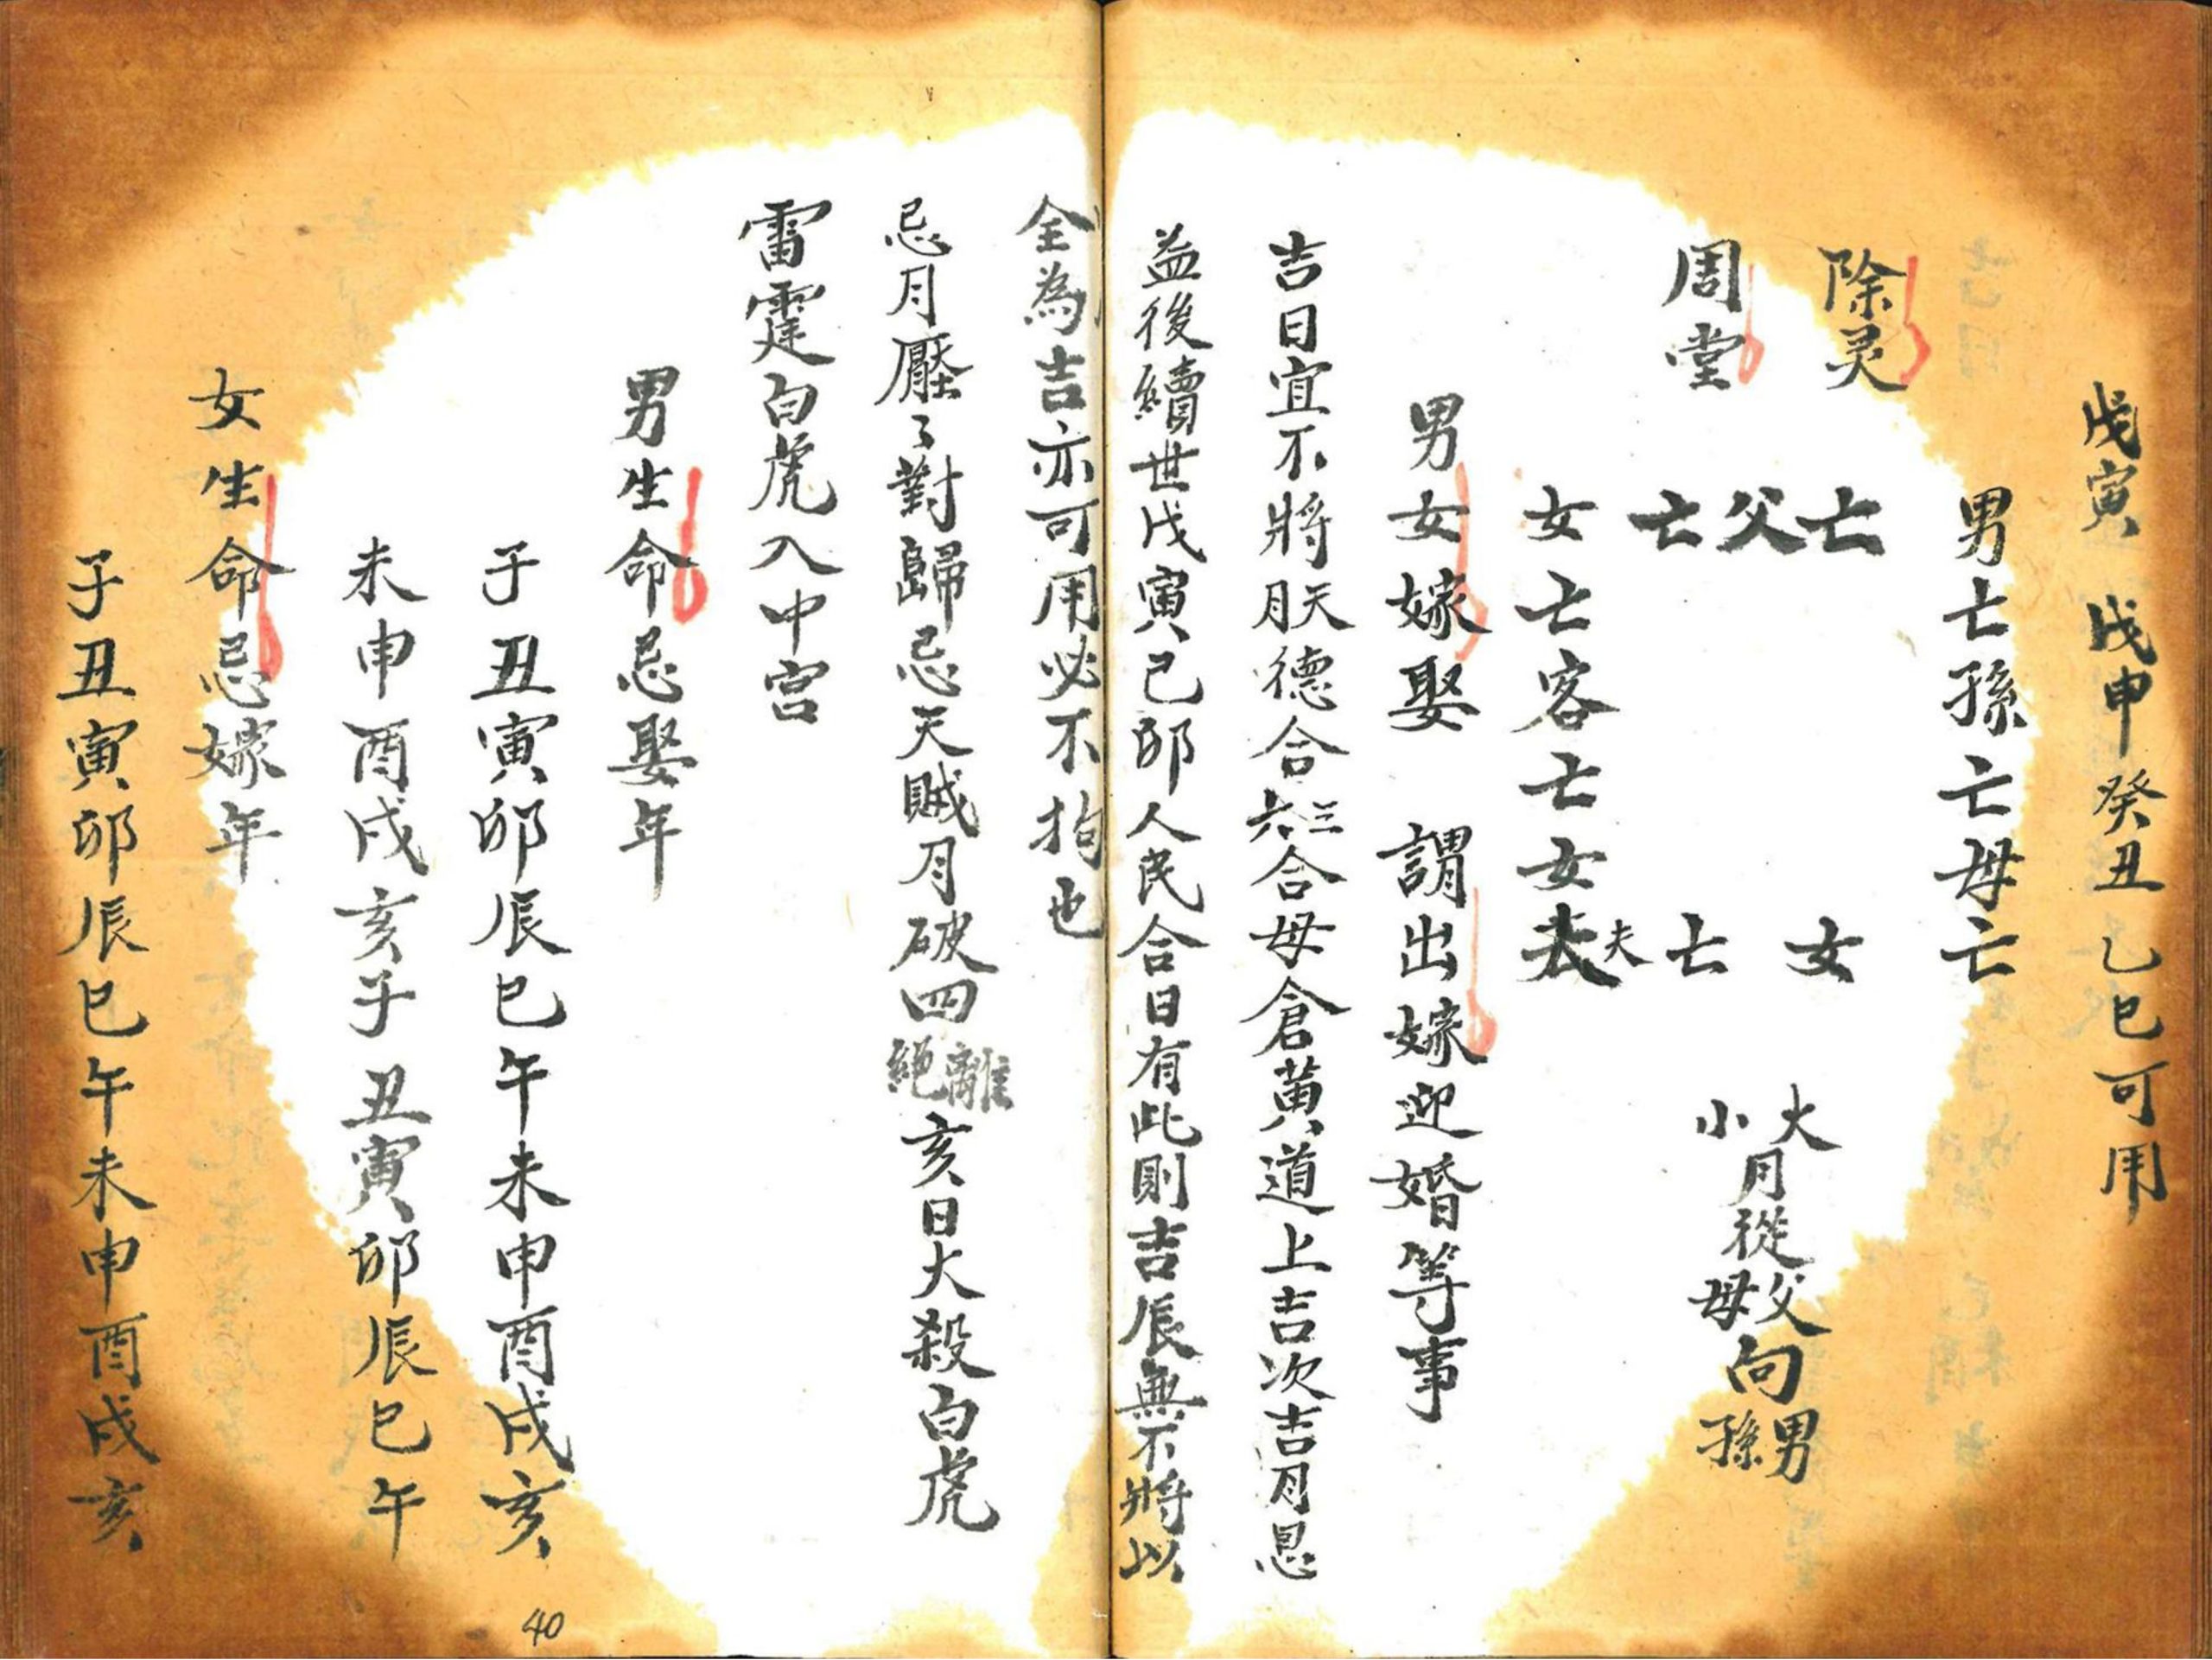 戊寅 戊申癸丑乙巳可用
男亡孫亡母亡
除灵
亡 女
父
周堂
亡 亡
大小月從父母向男孫
女亡客亡女夫
男女嫁娶 謂出嫁迎婚等事
吉日宜不將天月德合三六合母倉黄道上吉次吉月恩
益後續世戊寅己卯人民合日有此則吉辰無不將以
全為吉亦可用必不拘也
忌月壓々對歸忌天賊月破四離絕亥日大殺白虎
雷霆白虎入中宮
男生命忌娶年
子丑寅卯辰巳午未申酉戌亥
未申酉戌亥子丑寅卯辰巳午
女生命忌嫁年
子丑寅卯辰巳午未申酉戌亥
40